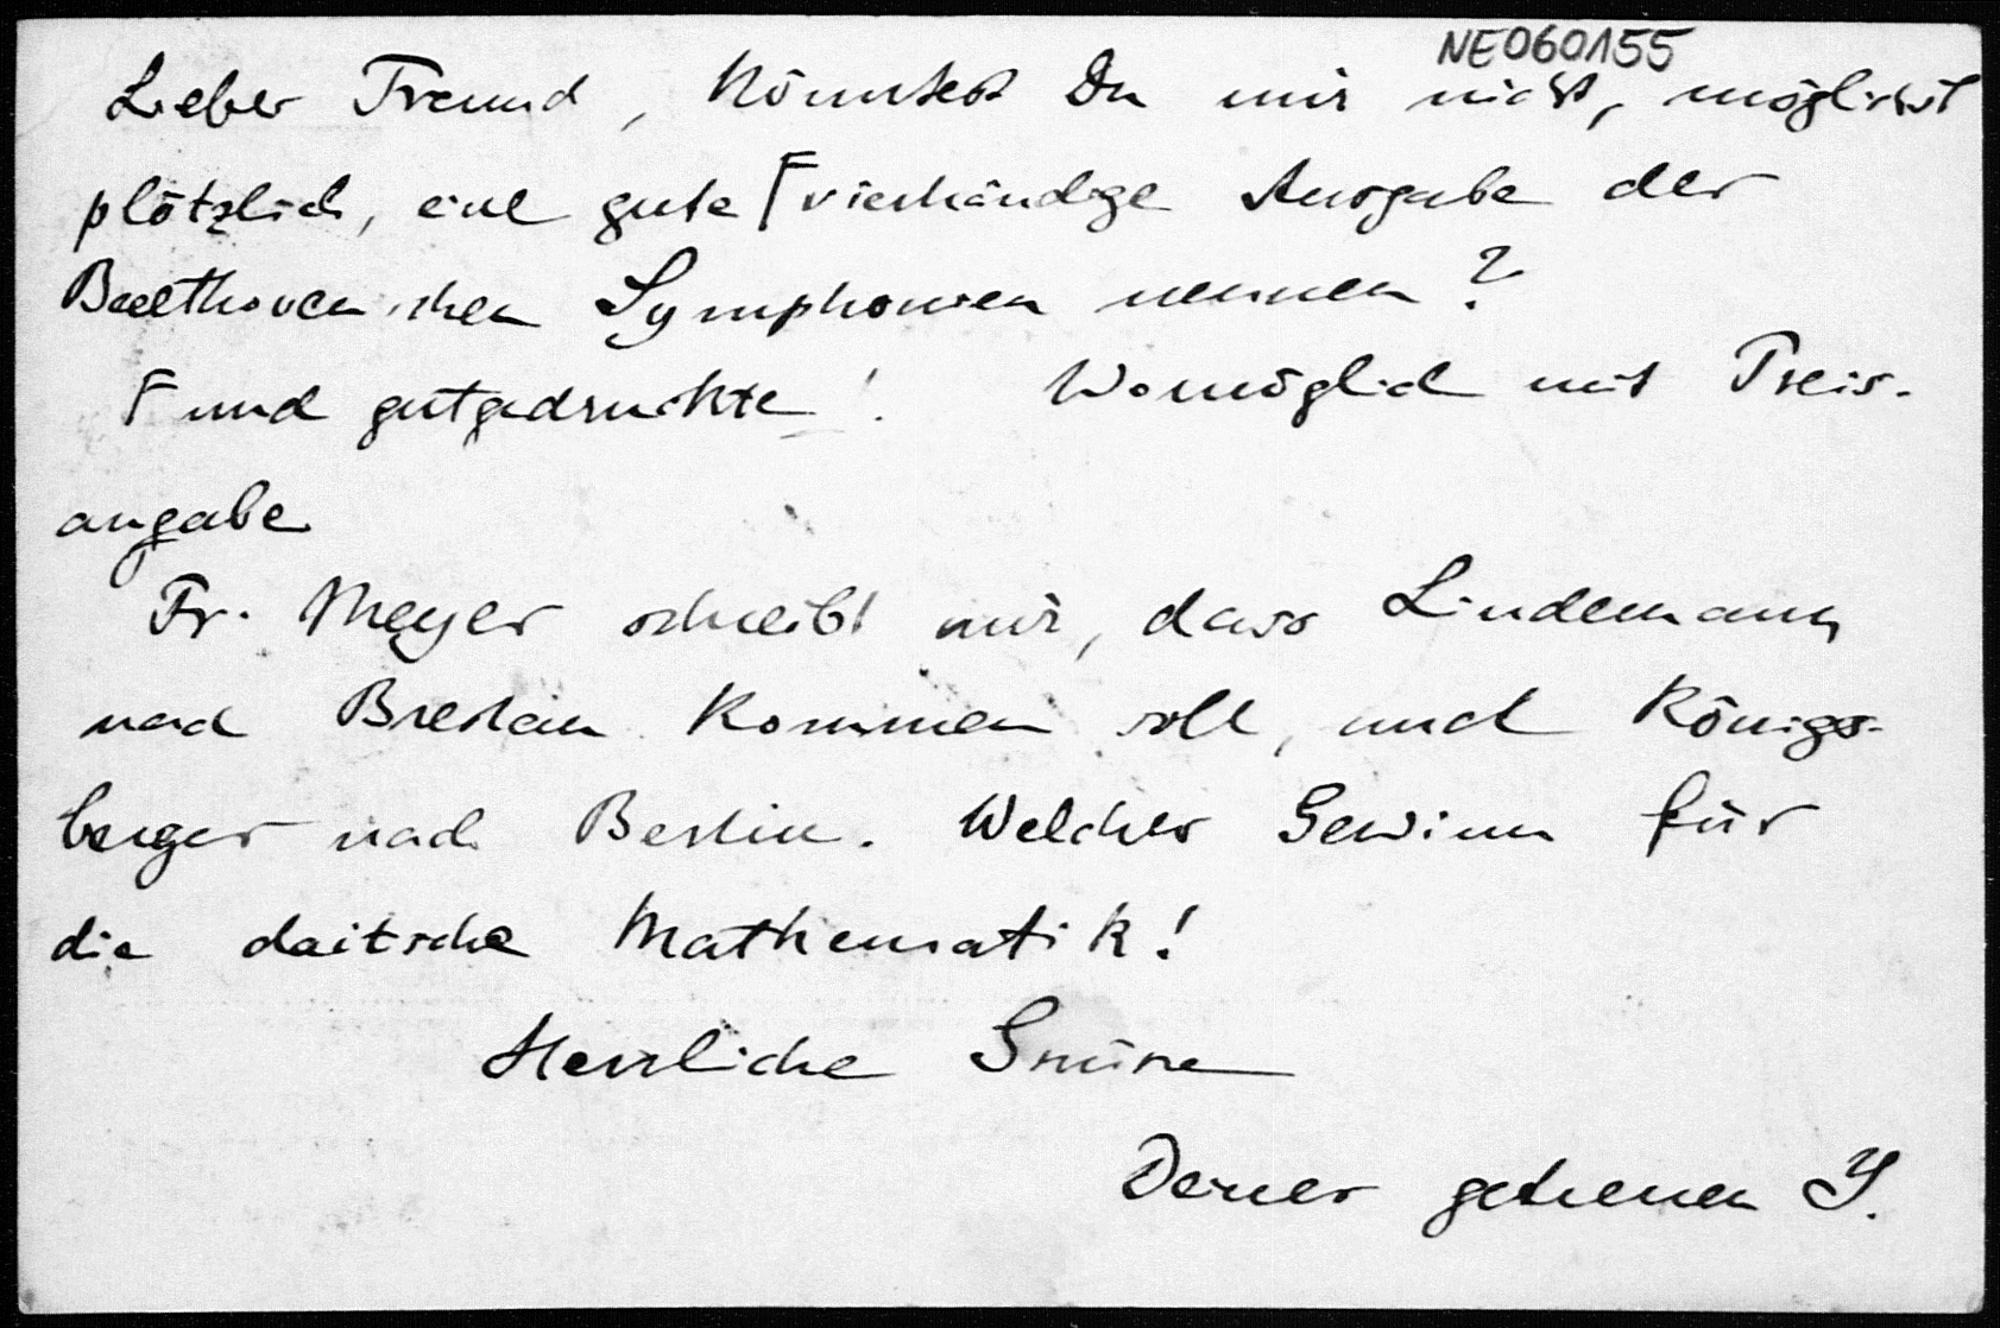 NE060155
Lieber Freund, könntest Du mir nicht, möglichst
plötzlich, eine gute Γ vierhändige Ausgabe der
Beethoven'schen Symphonien nennen?
Γ und gutgedruckte! Womöglich mit Preis-
angabe
Fr. Meyer schreibt mir, dass Lindemann
nach Breslau kommen soll, und Königs-
berger nach Berlin. Welcher Gewinn für
die daitsche Mathematik!
Herzliche Grüsse
Deines getreuen